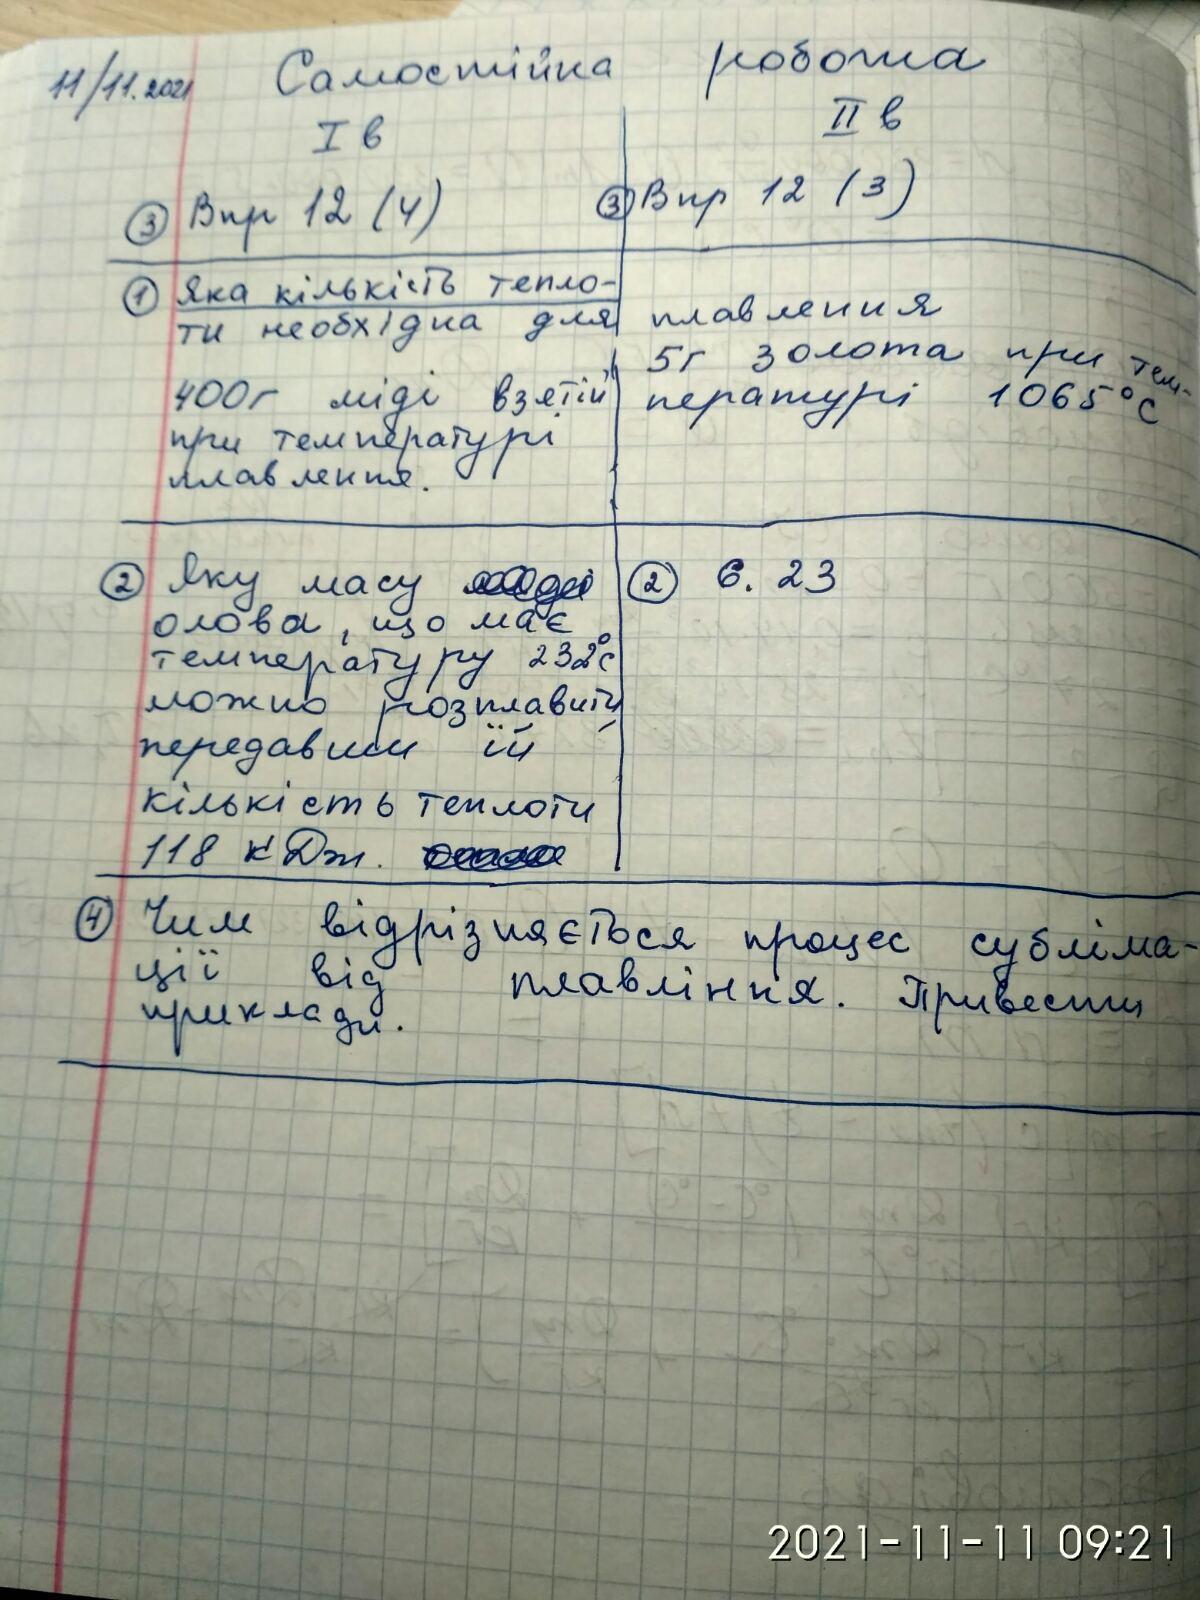 11/11.2021 Самостійна робота
I в
II в
③ Впр 12 (4)
③ Впр 12 (3)
① Яка кількість тепло-
ти необхідна для плавлення
400г міді взятій
при температурі
плавлення.
5г золота при тем-
пературі 1065°С
② Яку масу
олова, що має
температуру 232°с
можно розплавити
передавши їй
кількість теплоти
118 кДж.
② 6. 23
④ Чим відрізняється процес субліма-
ції від плавління. Привести
приклади.
2021-11-11 09:21